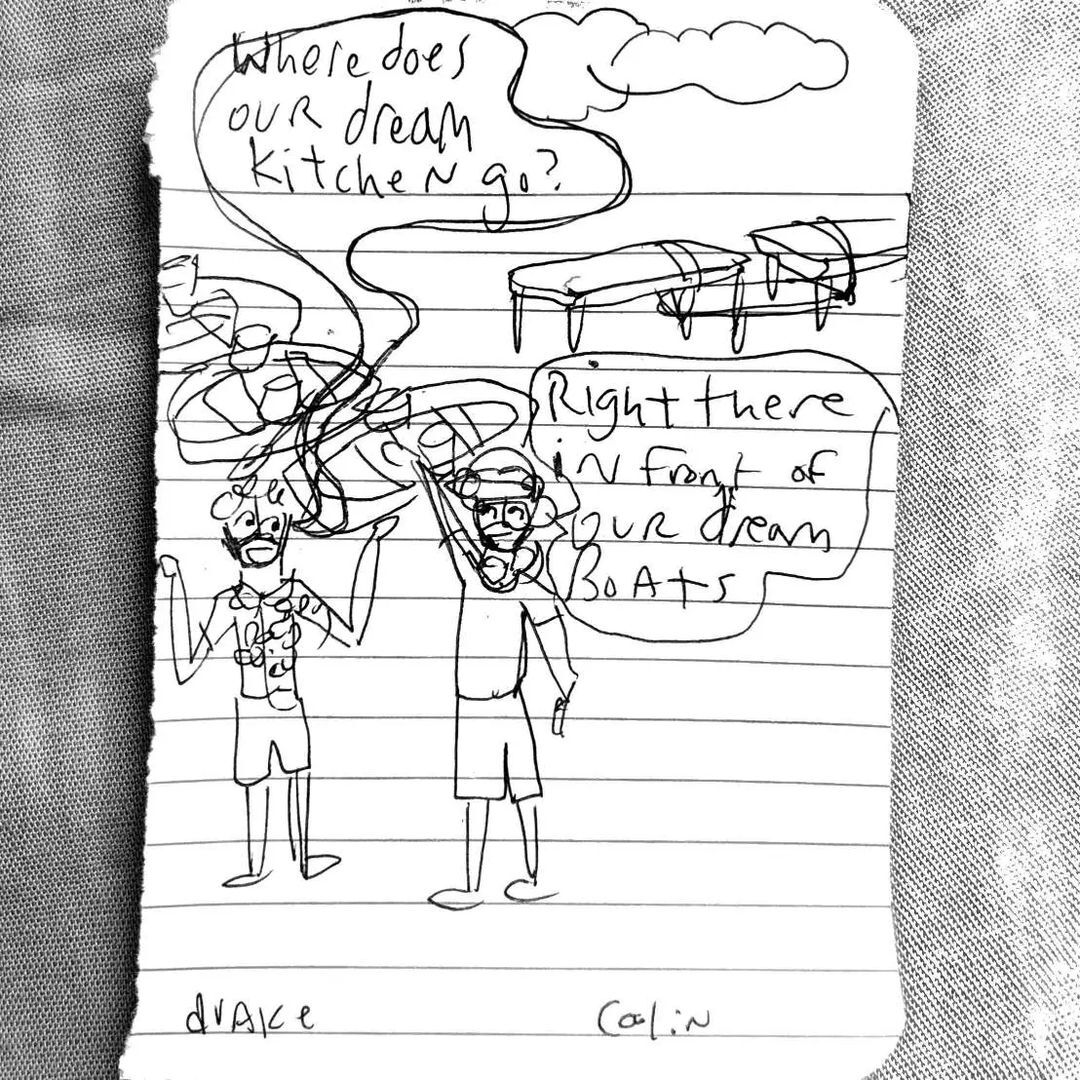 Where does
our dream
kitchen go?
Right there
in front of
our dream
Boats
drake
Colin